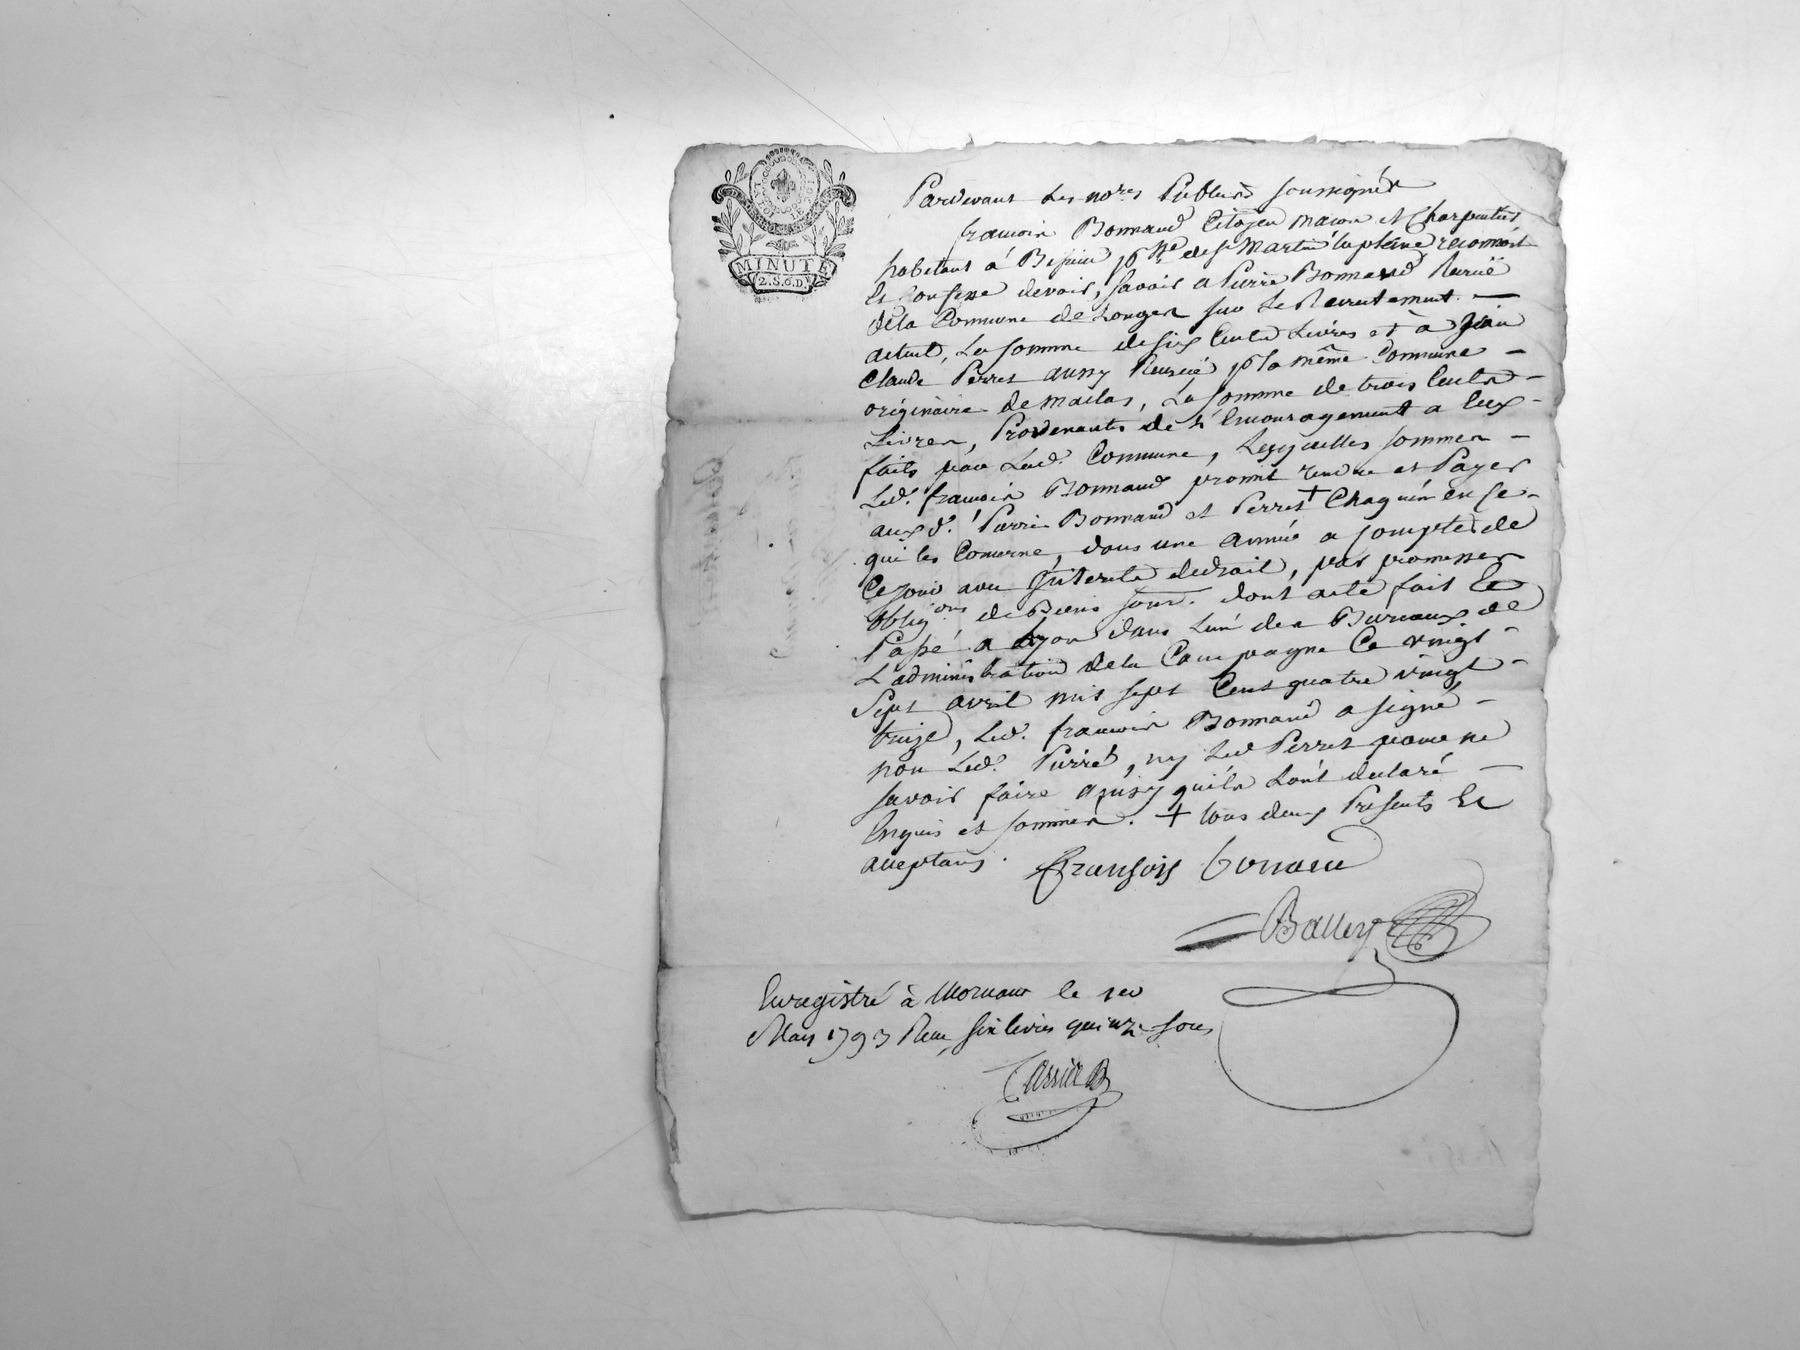 MINUTE
2.S.6.D.
Pardevant Les no.res Publics soussignés
francois Bonnand Citoyen macon et Charpentier
habitant á p.sse de st Martin la plaine reconnoît
et Confesse devoir, savoir a Pierre Bonnand Recrüe
de la Commune de Longes sur Le Recrutement —
actuel, La somme de six Cents Livres et à Jean
Claude Perret aussy Recrüe p.r la même Commune —
originaire de maclas, La somme de trois Cents —
Livres, Provenants de L'Encouragement a Eux
faits par Lad.e Commune, Lesquelles sommes —
Led.t francois Bonnand promet rendre et Payer
auxd.s Pierre Bonnand et Perret + Chaqu'un en ce
qui les Concerne, dans une année a Compter de
Ce jour avec Interets de droit, par promesses
oblig.ons de Biens soum.s dont acte fait Et
Passé a Lyon dans L'un des Bureaux de
L'administration de la Campagne Ce vingt
sept avril mil sept Cent quatre vingt —
treize, Led.t francois Bonnand a signé —
non Led.t Pierre, ny Led.t Perret pour ne
savoir faire ainsy qu'ils L'ont declaré —
Enquis et sommés. + tous deux Presents Et
acceptans.
François bonand
Balley
Enregistré à Mornant le 1er
May 1793 Reçu six livres quinze sous